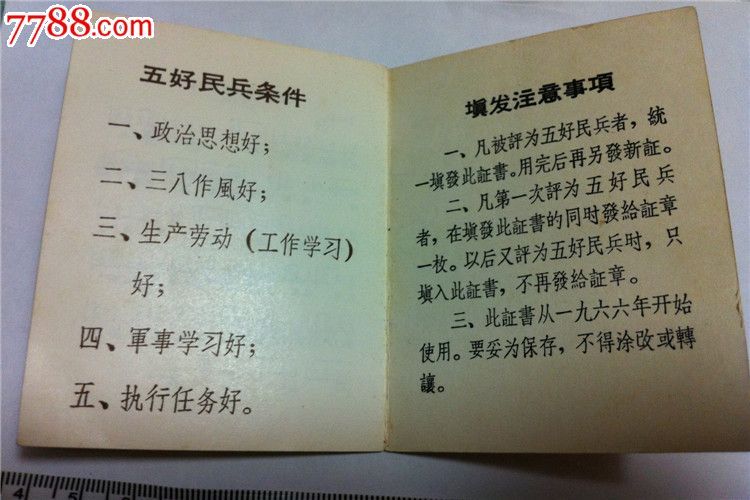 7788.com
五好民兵条件
一、政治思想好；
二、三八作風好；
三、生产劳动（工作学习）
好；
四、軍事学习好；
五、执行任务好。
填发注意事項
一、凡被評为五好民兵者，統
一填發此証書。用完后再另發新証。
二、凡第一次評为五好民兵
者，在填發此証書的同时發給証章
一枚。以后又評为五好民兵时，只
填入此証書，不再發給証章。
三、此証書从一九六六年开始
使用。要妥为保存，不得涂改或轉
讓。
4 5